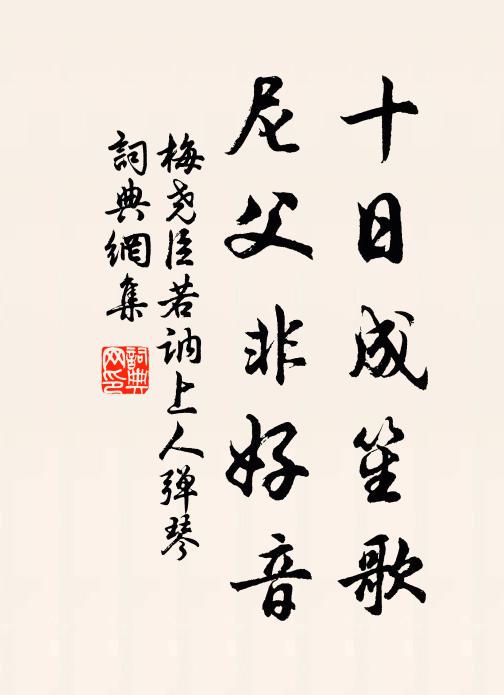 十日成笙歌
尼父非好音
梅尧臣若讷上人弹琴
詞典網集
詞典
网印